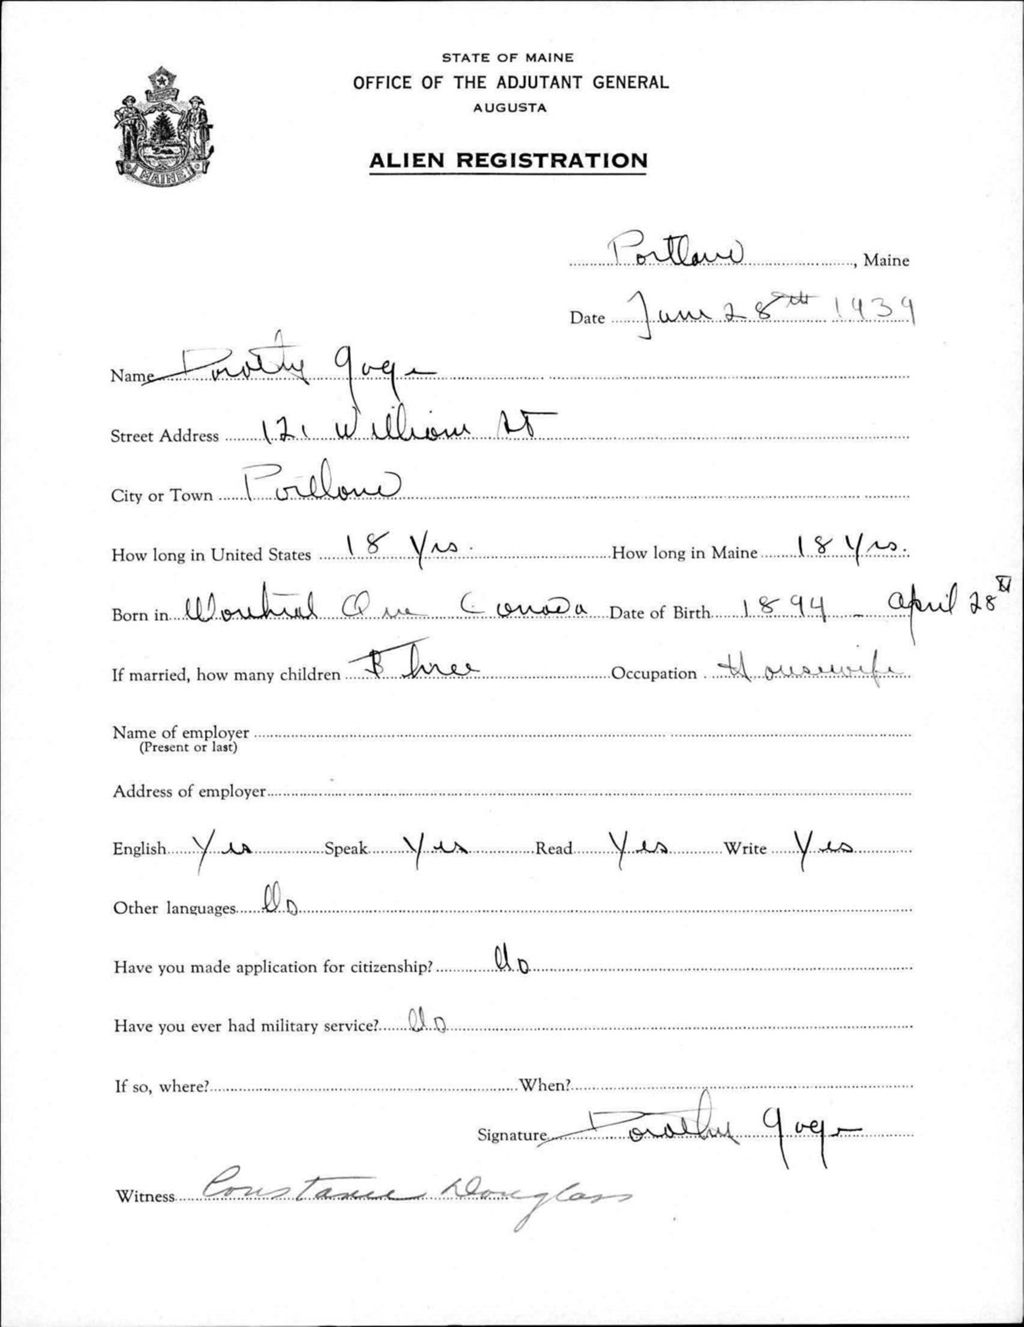 STATE OF MAINE
OFFICE OF THE ADJUTANT GENERAL
AUGUSTA
MAINE
ALIEN REGISTRATION
Portland, Maine
Date June 28th 1939
Name Dorothy
Street Address 121 William St
City or Town Portland
How long in United States 18 Yrs. How long in Maine 18 Yrs.
Born in Montreal Que Canada Date of Birth 1894 - April 28th
If married, how many children Three Occupation Housewife
Name of employer
(Present or last)
Address of employer
English Yes Speak Yes Read Yes Write Yes
Other languages No
Have you made application for citizenship? No
Have you ever had military service? No
If so, where? When?
Signature Dorothy
Witness Constance Douglass